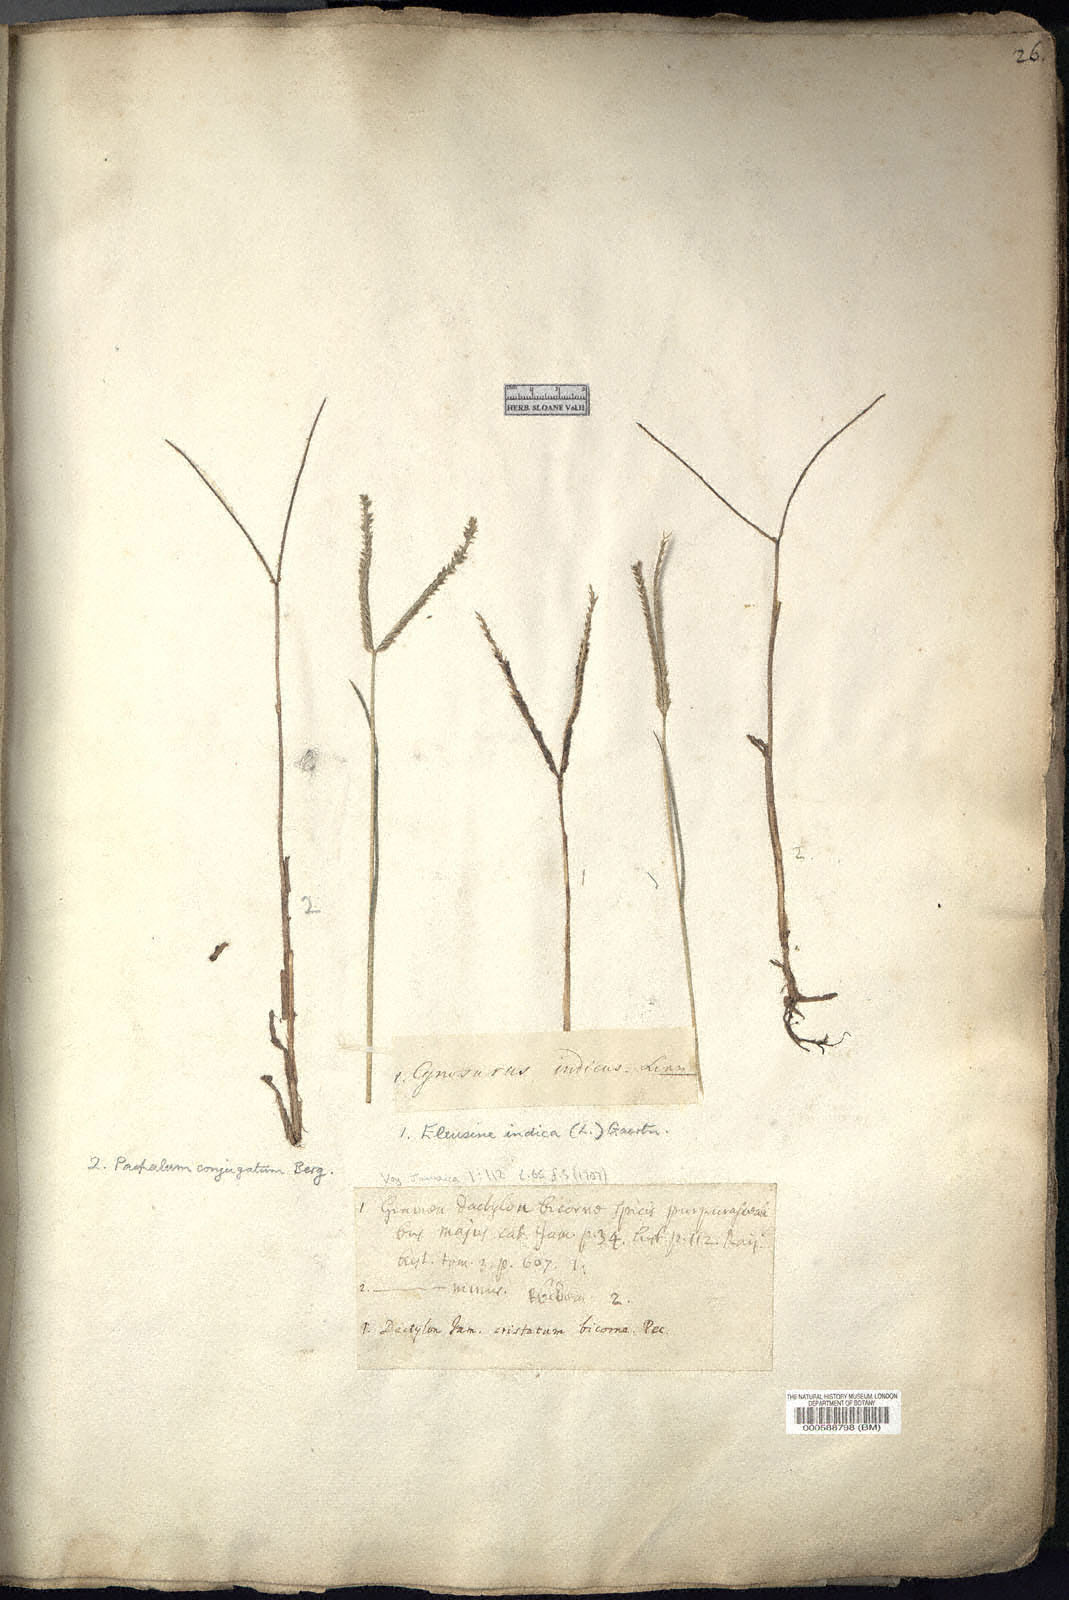 26.
HERB. SLOANE Vol.II
2
1
2.
1. Cynosurus indicus. Linn
1. Eleusine indica (L.) Gaertn.
2. Paspalum conjugatum Berg.
Voy Jamaica 1:112 (1707)
1 Gramen Dactylon bicorne spicis purpurascenti
bus majus cat. Jam. p. 34. hist. p. 112. Raij.
hist. tom. 3. p. 607. 1.
2. ——— minus. 2.
1. Dactylon Jam. cristatum bicorne. Pet.
THE NATURAL HISTORY MUSEUM, LONDON
DEPARTMENT OF BOTANY
000588798 (BM)